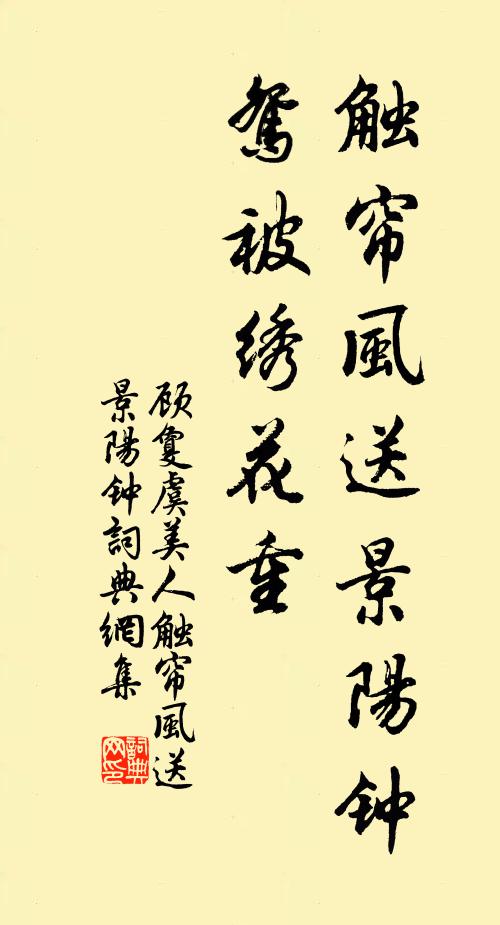 触帘風送景陽钟
鸳被绣花重
顾敻虞美人触帘風送
景陽钟詞典網集
詞典
网印